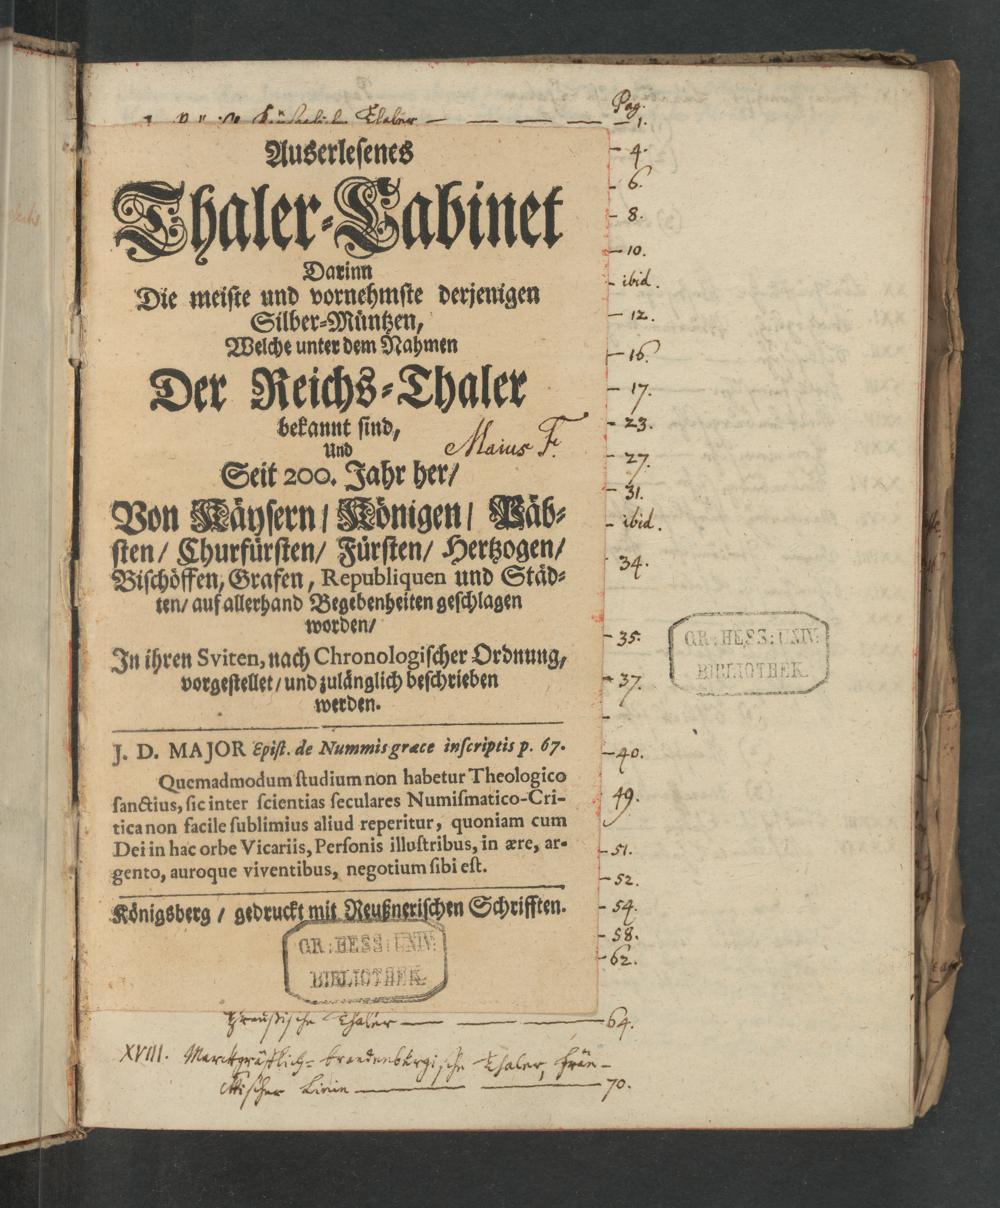 Pag.
Thaler — — — — 1.
Auserlesenes
Thaler-Cabinet
Darinn
Die meiste und vornehmste derjenigen
Silber-Müntzen,
Welche unter dem Nahmen
Der Reichs-Thaler
bekannt sind,
Und
Maius F.
Seit 200. Jahr her/
Von Käysern/ Königen/ Päb-
sten/ Churfürsten/ Fürsten/ Hertzogen/
Bischöffen, Grafen, Republiquen und Städ-
ten/ auf allerhand Begebenheiten geschlagen
worden/
In ihren Sviten, nach Chronologischer Ordnung,
vorgestellet/ und zulänglich beschrieben
werden.
J. D. MAJOR Epist. de Nummis græce inscriptis p. 67.
Quemadmodum studium non habetur Theologico
sanctius, sic inter scientias seculares Numismatico-Cri-
tica non facile sublimius aliud reperitur, quoniam cum
Dei in hac orbe Vicariis, Personis illustribus, in ære, ar-
gento, auroque viventibus, negotium sibi est.
Königsberg / gedruckt mit Reußnerischen Schrifften.
GR: HESS: UNIV:
BIBLIOTHEK.
- 4.
- 6.
- 8.
- 10.
- ibid.
- 12.
- 16.
- 17.
- 23.
- 27.
- 31.
- ibid.
- 34.
- 35.
- 37.
- 40.
49.
- 51.
- 52.
- 54.
- 58.
- 62.
GR: HESS: UNIV:
BIBLIOTHEK.
Preußische Thaler — — — 64.
XVIII. Marckgräfflich-brandenburgische Thaler, Frän-
ckischer Linie — — 70.